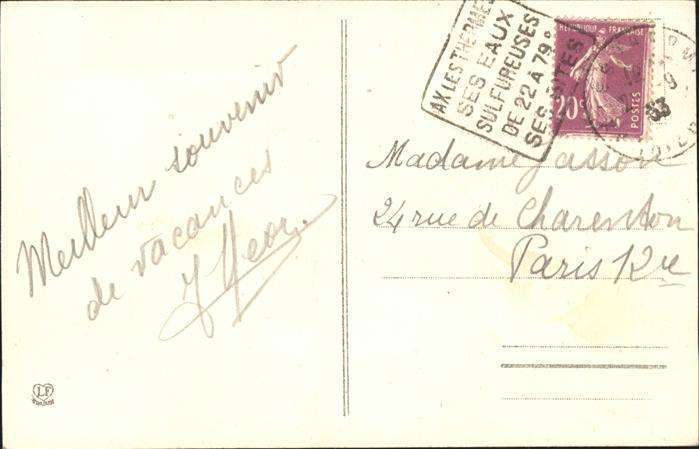 Meilleur souvenir
de vacances
LF
AX LES THERMES
SES EAUX
SULFUREUSES
DE 22 A 79°
SES SITES
REPUBLIQUE FRANÇAISE
20c
POSTES
33
Madame Jasson
24 rue de Charenton
Paris 12e